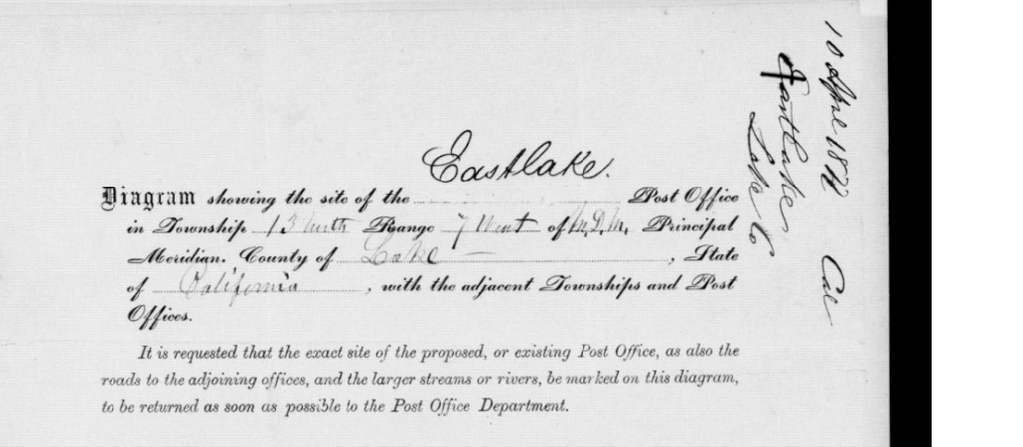 Eastlake.
Diagram showing the site of the Post Office
in Township 13 North Range 7 West of M.D.M. Principal
Meridian. County of Lake — , State
of California , with the adjacent Townships and Post
Offices.
It is requested that the exact site of the proposed, or existing Post Office, as also the
roads to the adjoining offices, and the larger streams or rivers, be marked on this diagram,
to be returned as soon as possible to the Post Office Department.
10 April Cal
Eastlake
Lake Co